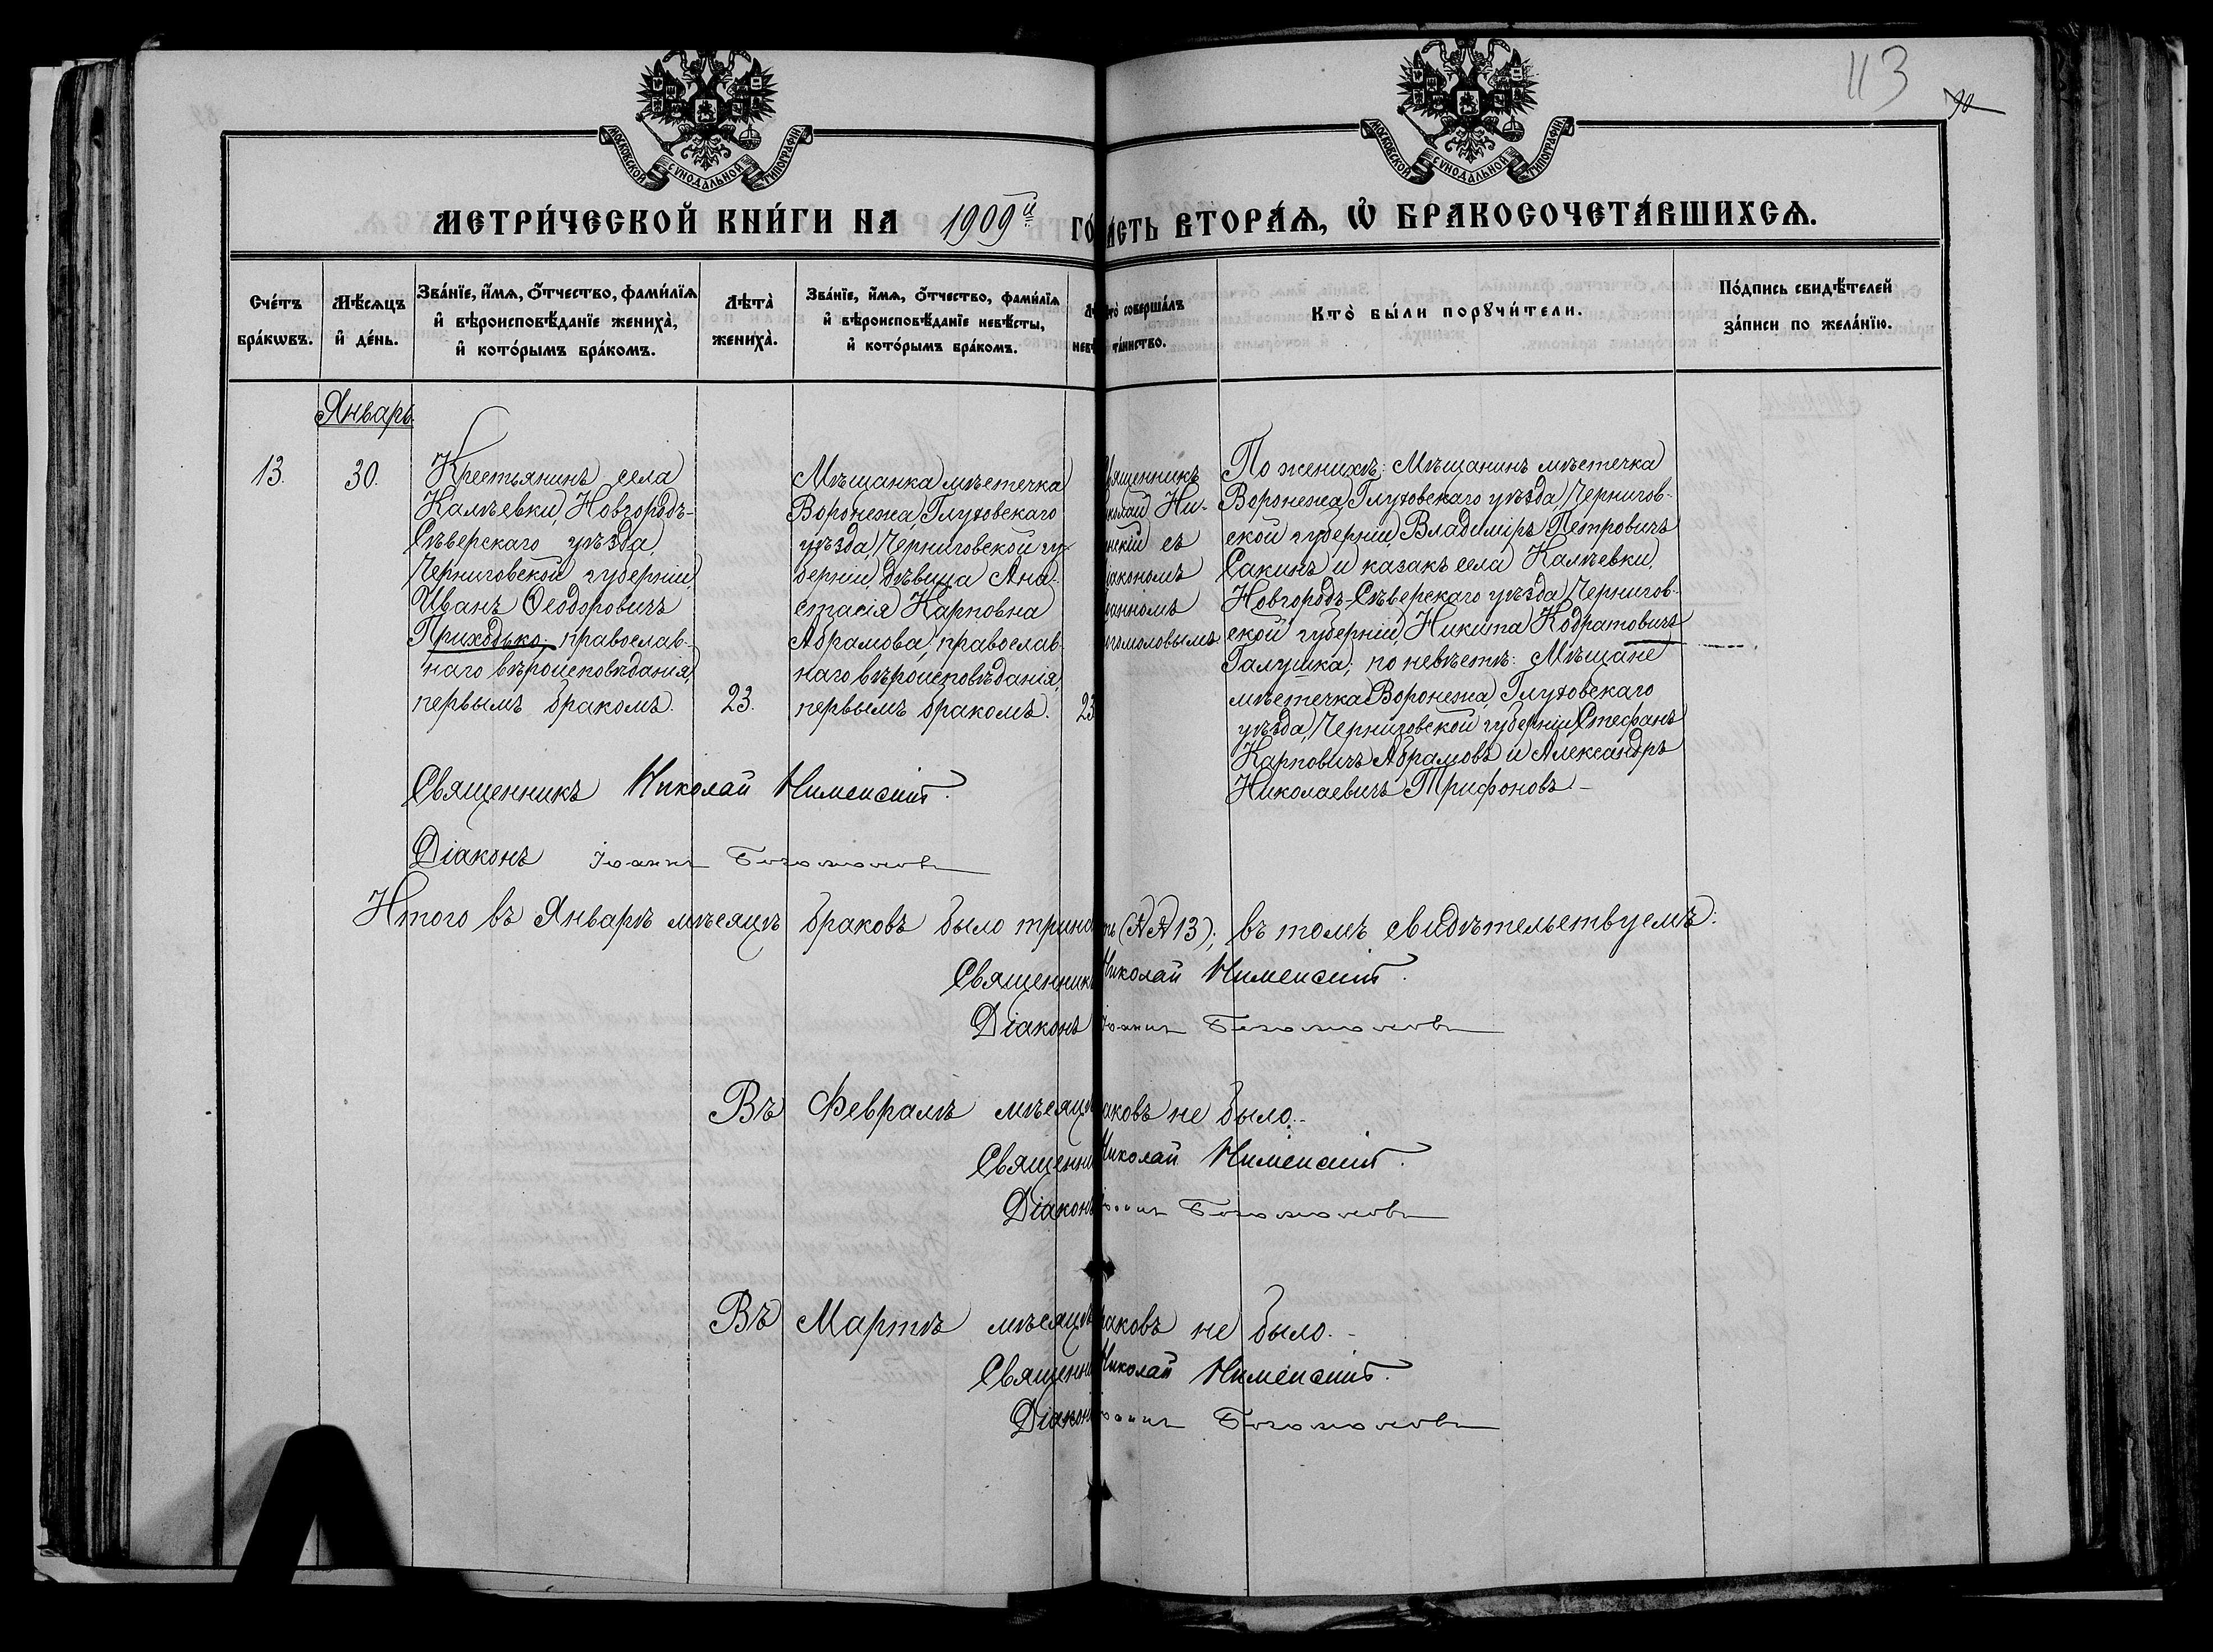 113
90
МОСКОВСКОЙ СѴНОДАЛЬНОЙ ТИПОГРАФІИ
МОСКОВСКОЙ СѴНОДАЛЬНОЙ ТИПОГРАФІИ
МЕТРИ́ЧЕСКОЙ КНИ́ГИ НА 1909й ГО
А́СТЬ ВТОРА́Ѧ, Ѽ БРАКОСОЧЕТА́ВШИХСѦ.
Сче́тъ
бра́кѡвъ.
Мѣ́сѧцъ
и҆ де́нь.
Зва́нїе, и҆́мѧ, ѻ҆́тчество, фами́лїѧ
и҆ вѣроисповѣ́данїе жениха̀,
и҆ кото́рымъ бра́комъ.
Лѣта̀
жениха̀.
Зва́нїе, и҆́мѧ, ѻ҆́тчество, фами́лїѧ
и҆ вѣроисповѣ́данїе невѣ́сты,
и҆ кото́рымъ бра́комъ.
Лѣ
невѣ
то̀ соверша́лъ
та́инство.
Кто̀ бы́ли порꙋчи́тели.
По́дпись свидѣ́телей
за́писи по жела́нїю.
Январь
13.
30.
Крестьянинъ села
Калѣевки, Новгородъ-
Сѣверскаго уѣзда,
Черниговской губерніи,
Иванъ Ѳеодоровичъ
Приходько; православ-
наго вѣроисповѣданія,
первымъ бракомъ.
23.
Мѣщанка мѣстечка
Воронежа, Глуховскаго
уѣзда, Черниговской гу-
берніи, дѣвица Ана-
стасія Карповна
Абрамова; православ-
наго вѣроисповѣданія,
первымъ бракомъ.
23
вященникъ
иколай Ни-
нскій съ
іакономъ
оанномъ
огомоловымъ
По женихѣ: Мѣщанинъ мѣстечка
Воронежа, Глуховскаго уѣзда, Чернигов-
ской губерніи, Владиміръ Петровичъ
Сакинъ и казакъ села Калѣевки,
Новгородъ-Сѣверскаго уѣзда, Чернигов-
ской губерніи, Никита Кодратовичъ
Галушка; по невѣстѣ: Мѣщане
мѣстечка Воронежа, Глуховскаго
уѣзда, Черниговской губерніи, Стефанъ
Карповичъ Абрамовъ и Александръ
Николаевичъ Трифоновъ
Священникъ Николай
Діаконъ Іоаннъ Богомоловъ
Итого въ Январѣ мѣсяцѣ браковъ было трина ть (№№ 13); въ томъ свидѣтельствуемъ:
Священникъ Николай
Діаконъ Іоаннъ Богомоловъ
Въ Февралѣ мѣсяцѣ аковъ не было.
Священни Николай
Діаконъ Богомоловъ
Въ Мартѣ мѣсяцѣ раковъ не было.
Священни Николай
Діакон Богомоловъ